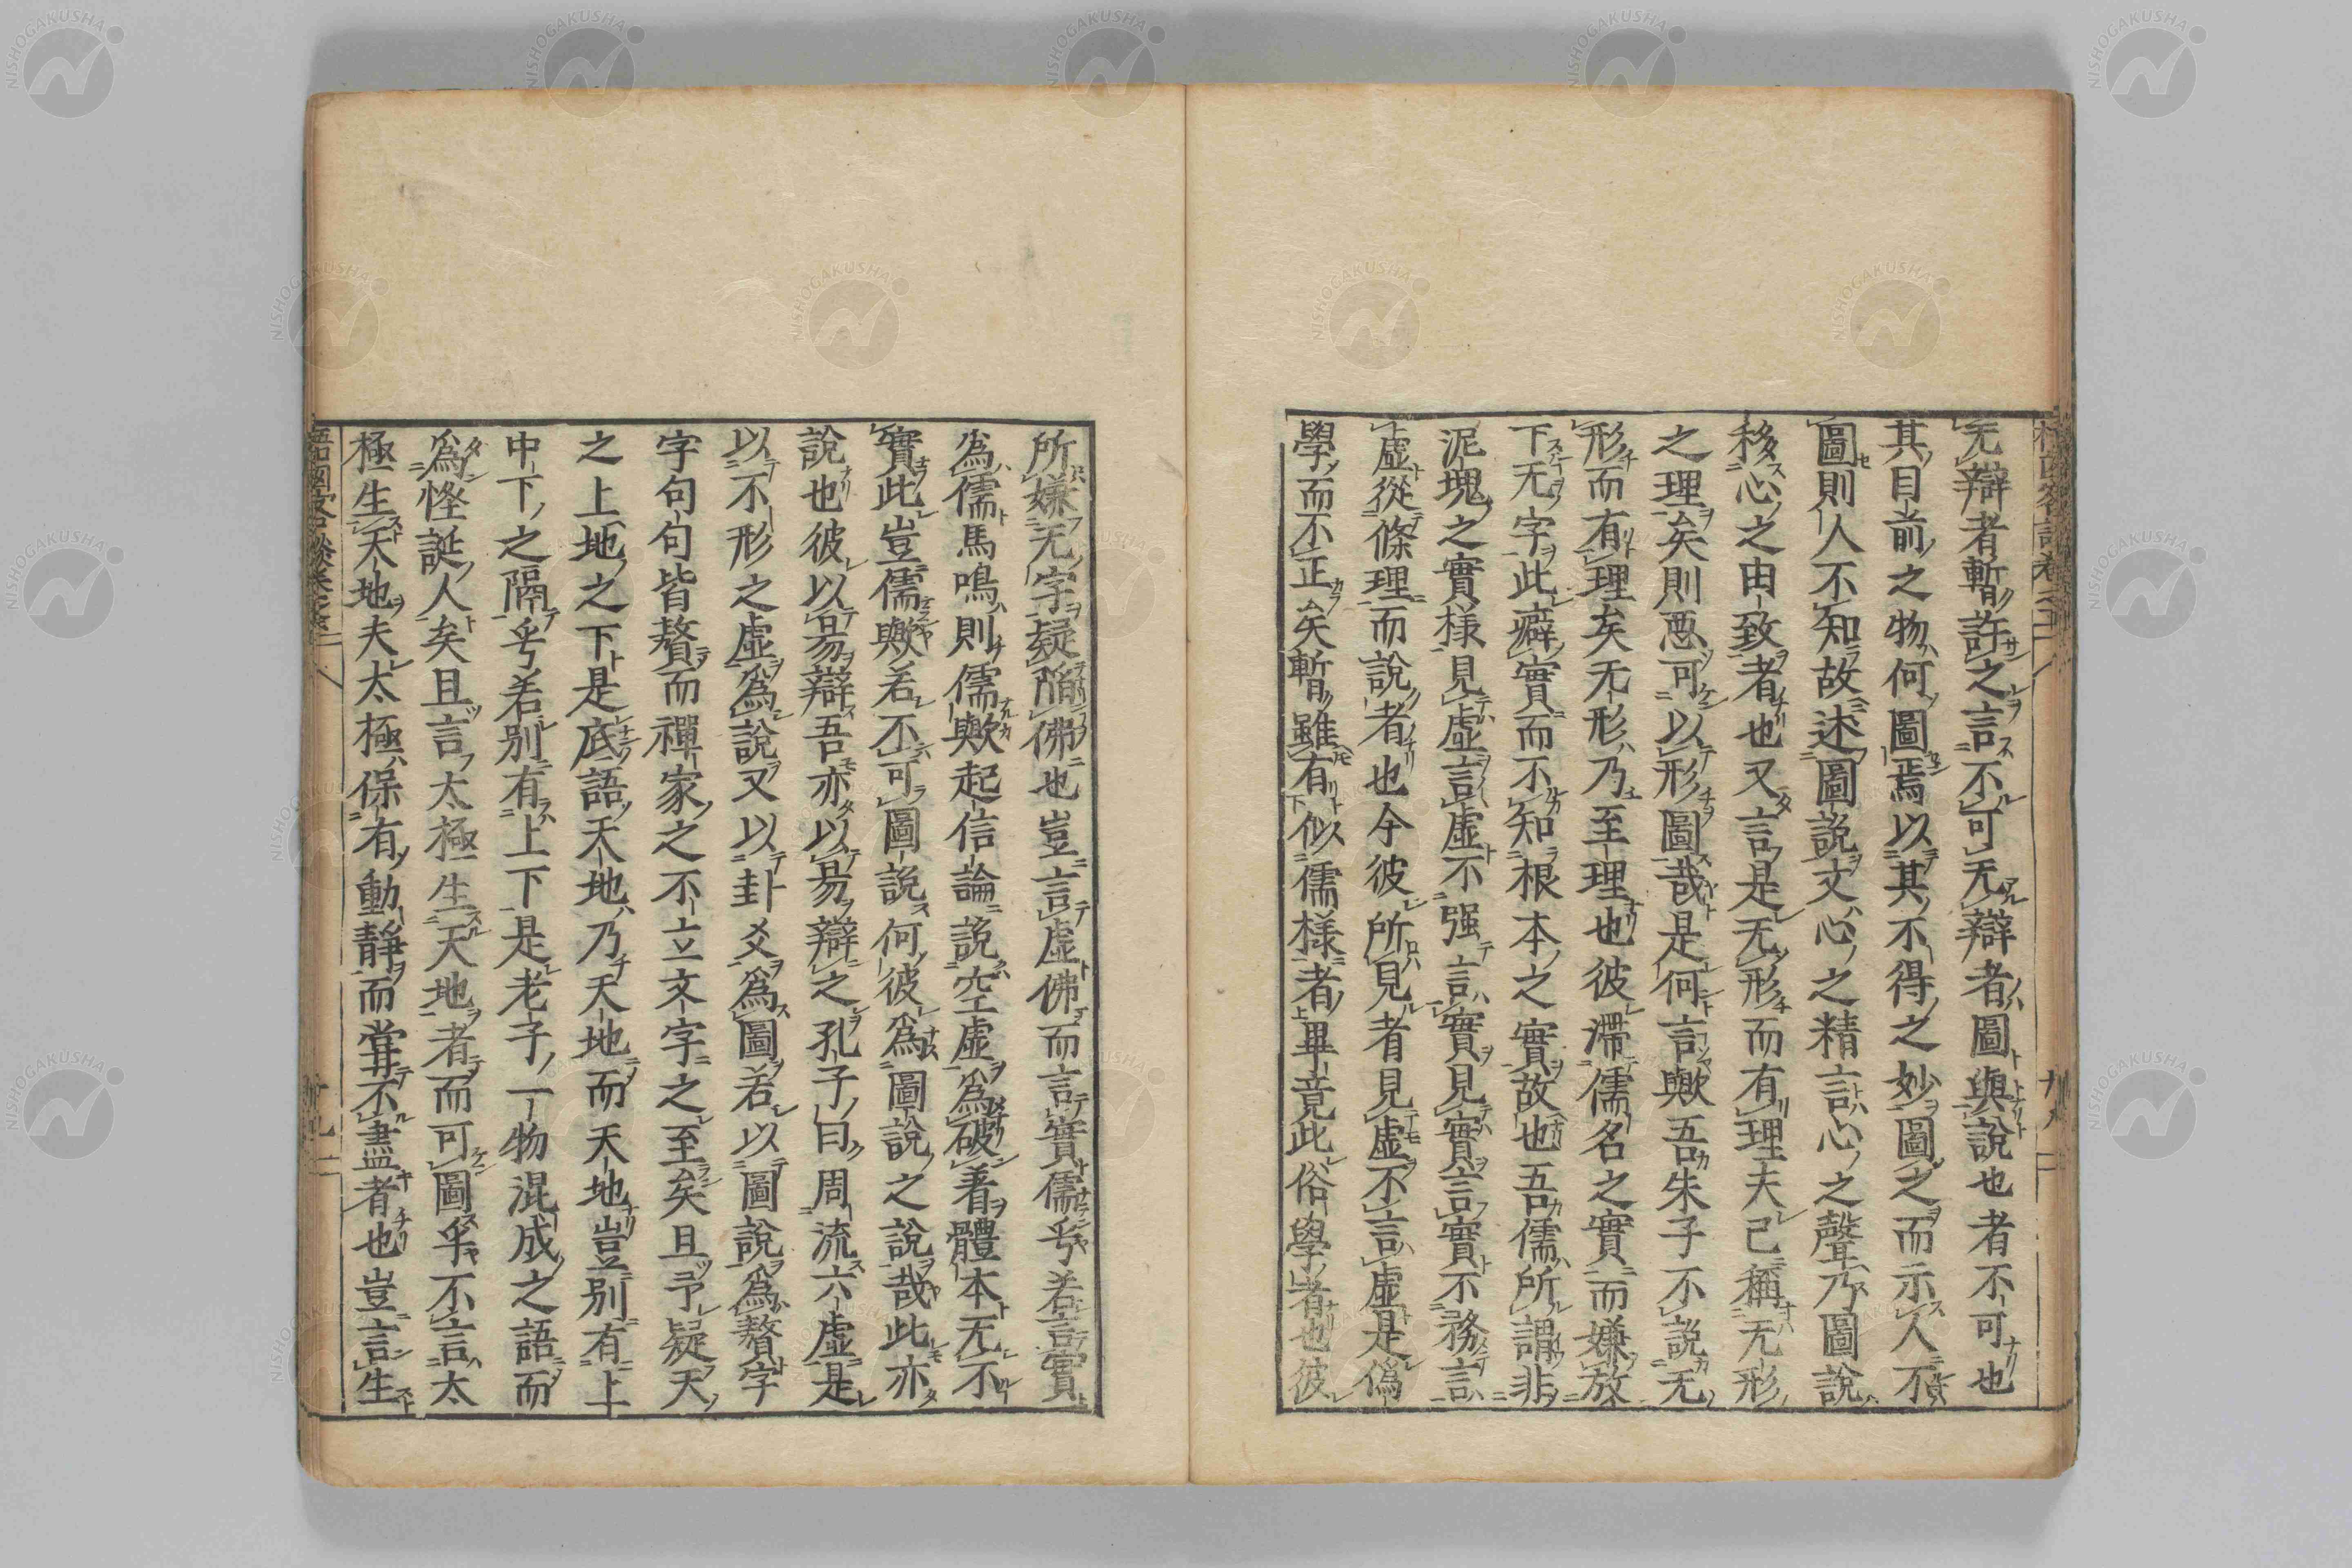 无辯者暫許之言不可无辯者圖與說也者不可也
其目前之物何圖焉以其不得之妙圖之而示人不
圖則人不知故述圖說文心之精言心之聲乃圖說
移心之由致者也又言是无形而有理夫已稱无形
之理矣則惡可以形圖哉是何言歟吾朱子不說无
形而有理矣无形乃至理也彼滯儒名之實而嫌放
下无字此癖實而不知根本之實故也吾儒所謂非
泥塊之實樣見虛言虛不强言實見實言實不務言
虛從條理而說者也今彼所見者見虛不言虛是僞
學而不正矣暫雖有似儒樣者畢竟此俗學者也彼
所嫌无字疑陥佛也豈言虛佛而言實儒乎若言實
為儒馬鳴則儒歟起信論說空虛為破著體本无不
實此豈儒歟若不可圖說何彼爲圖說之說哉此亦
說也彼以易辯吾亦以易辯之孔子曰周流六虛是
以不形之虛爲說又以卦爻爲圖若以圖說爲贅字
字句句皆贅而禪家之不立文字之至矣且予疑天
之上地之下是底語天地乃天地而天地豈別有上
中下之隔乎若別有上下是老子一物混成之語而
爲怪誕人矣且言太極生天地者而可圖乎不言太
極生天地夫太極保有動靜而嘗不盡者也豈言生